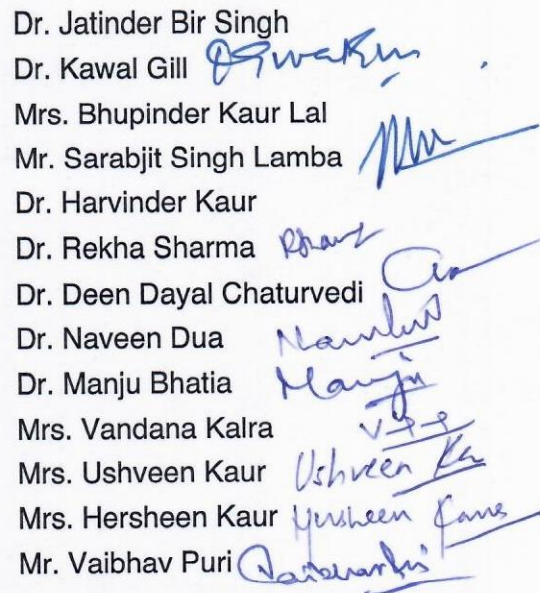 Dr. Jatinder Bir Singh
Dr. Kawal Gill
Mrs. Bhupinder Kaur Lal
Mr. Sarabjit Singh Lamba
Dr. Harvinder Kaur
Dr. Rekha Sharma
Dr. Deen Dayal Chaturvedi
Dr. Naveen Dua
Dr. Manju Bhatia Manju
Mrs. Vandana Kalra
Mrs. Ushveen Kaur Ushveen
Mrs. Hersheen Kaur Hersheen
Mr. Vaibhav Puri